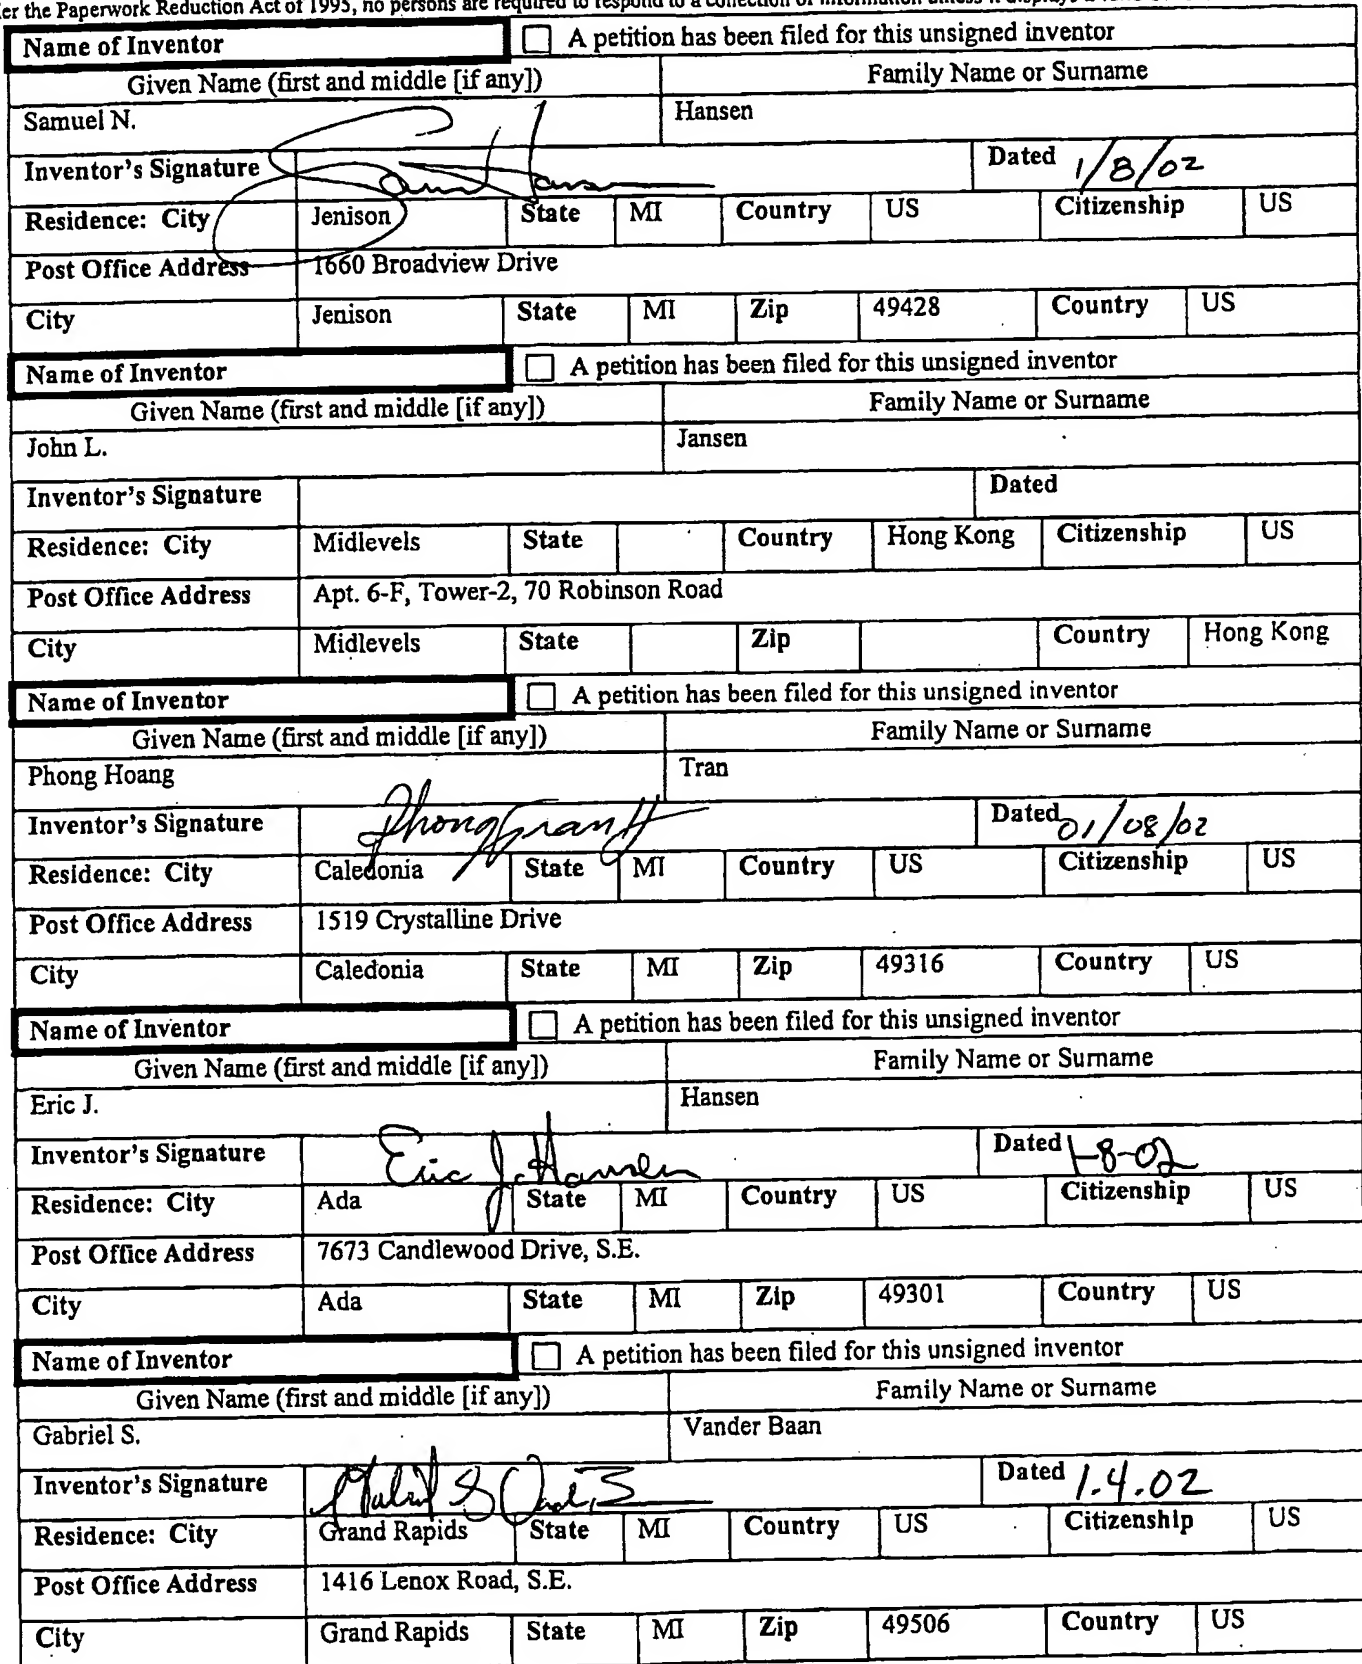 er the Paperwork Reduction Act of 1995, no persons are required to respond to a collection of information unless it displays a
Name of Inventor A petition has been filed for this unsigned inventor
Given Name (first and middle [if any]) Family Name or Surname
Samuel N. Hansen
Inventor's Signature Dated 1/8/02
Residence: City Jenison State MI Country US Citizenship US
Post Office Address 1660 Broadview Drive
City Jenison State MI Zip 49428 Country US
Name of Inventor A petition has been filed for this unsigned inventor
Given Name (first and middle [if any]) Family Name or Surname
John L. Jansen
Inventor's Signature Dated
Residence: City Midlevels State Country Hong Kong Citizenship US
Post Office Address Apt. 6-F, Tower-2, 70 Robinson Road
City Midlevels State Zip Country Hong Kong
Name of Inventor A petition has been filed for this unsigned inventor
Given Name (first and middle [if any]) Family Name or Surname
Phong Hoang Tran
Inventor's Signature Phong Tran H Dated 01/08/02
Residence: City Caledonia State MI Country US Citizenship US
Post Office Address 1519 Crystalline Drive
City Caledonia State MI Zip 49316 Country US
Name of Inventor A petition has been filed for this unsigned inventor
Given Name (first and middle [if any]) Family Name or Surname
Eric J. Hansen
Inventor's Signature Eric J. Hansen Dated 1-8-02
Residence: City Ada State MI Country US Citizenship US
Post Office Address 7673 Candlewood Drive, S.E.
City Ada State MI Zip 49301 Country US
Name of Inventor A petition has been filed for this unsigned inventor
Given Name (first and middle [if any]) Family Name or Surname
Gabriel S. Vander Baan
Inventor's Signature Dated 1.4.02
Residence: City Grand Rapids State MI Country US Citizenship US
Post Office Address 1416 Lenox Road, S.E.
City Grand Rapids State MI Zip 49506 Country US